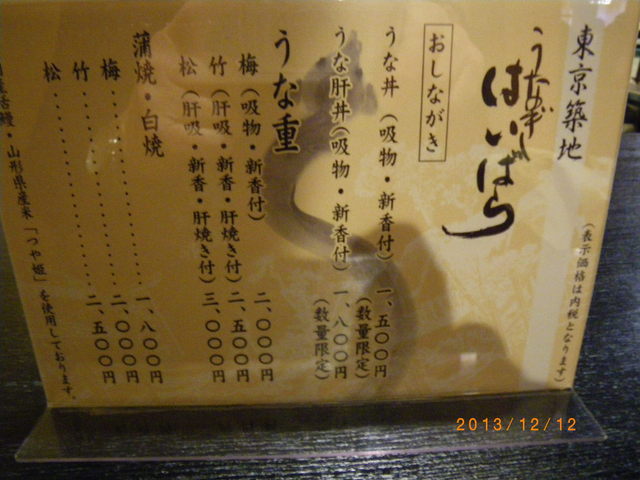 東京築地
うなぎ
はいばら
(表示価格は内税となります)
おしながき
うな丼 (吸物・新香付) 一、五〇〇円
(数量限定)
うな肝丼(吸物・新香付) 一、八〇〇円
(数量限定)
うな重
梅 (吸物・新香付) 二、〇〇〇円
竹 (肝吸・新香・肝焼き付) 二、五〇〇円
松 (肝吸・新香・肝焼き付) 三、〇〇〇円
蒲焼・白焼
梅 一、八〇〇円
竹 二、〇〇〇円
松 二、五〇〇円
・山形県産米「つや姫」を使用しております。
2013/12/12